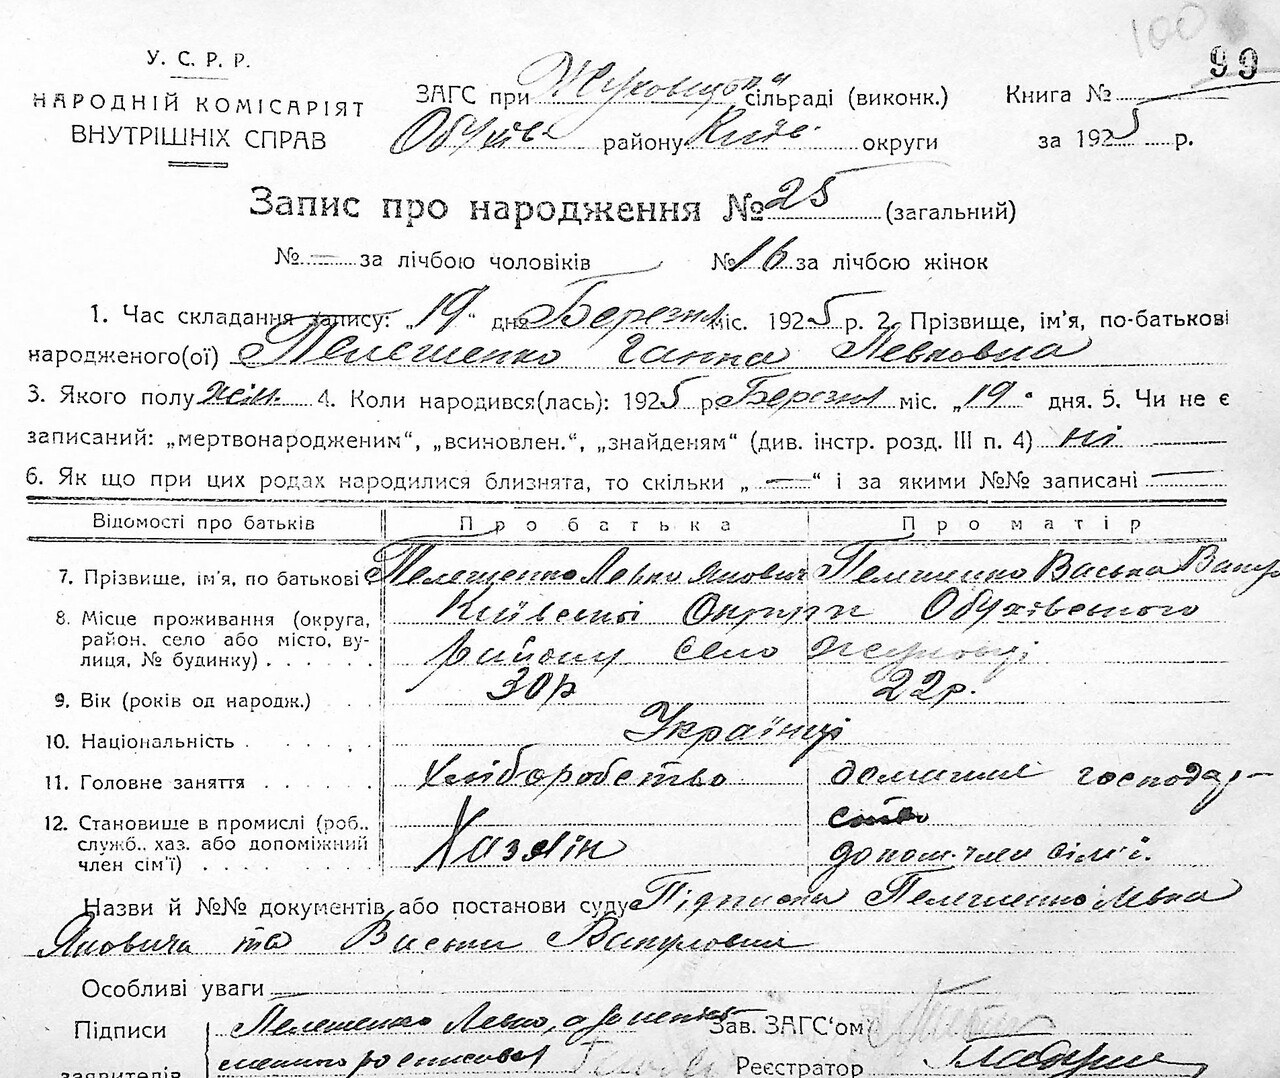 100
99
У. С. Р. Р.
НАРОДНІЙ КОМІСАРІЯТ
ВНУТРІШНІХ СПРАВ
ЗАГС при сільраді (виконк.) Книга №
району Київ. округи за 1925 р.
Запис про народження № 25 (загальний)
№ — за лічбою чоловіків № 16 за лічбою жінок
1. Час складання запису: „19" дня Березня міс. 1925 р. 2. Прізвище, ім'я, по-батькові
народженого(ої) Пелешенко Ганна Левковна
3. Якого полу жін. 4. Коли народився(лась): 1925 р. Березня міс. „19" дня. 5. Чи не є
записаний: „мертвонародженим", „всиновлен.", „знайденям" (див. інстр. розд. III п. 4) ні
6. Як що при цих родах народилися близнята, то скільки „—" і за якими №№ записані —
Відомості про батьків Про батька Про матір
7. Прізвище, ім'я, по батькові Пелешенко Левко Янович Пелешенко Васька
8. Місце проживання (округа, район. село або місто, вулиця, № будинку) Київської Округи Обухівського
району село Жуковці
9. Вік (років од народж.) 30 р 22 р.
10. Національність Українці
11. Головне заняття Хліборобство домашнє господар-
ство
12. Становище в промислі (роб., служб., хаз. або допоміжний член сім'ї) Хазяїн допом. член сім'ї.
Назви й №№ документів або постанови суду Підписка Пелешенко Левка
Яновича та Васьки Вакуловни
Особливі уваги —
Підписи Пелешенко Левко, а Зав. ЗАГС'ом
заявителів росписовся Реєстратор